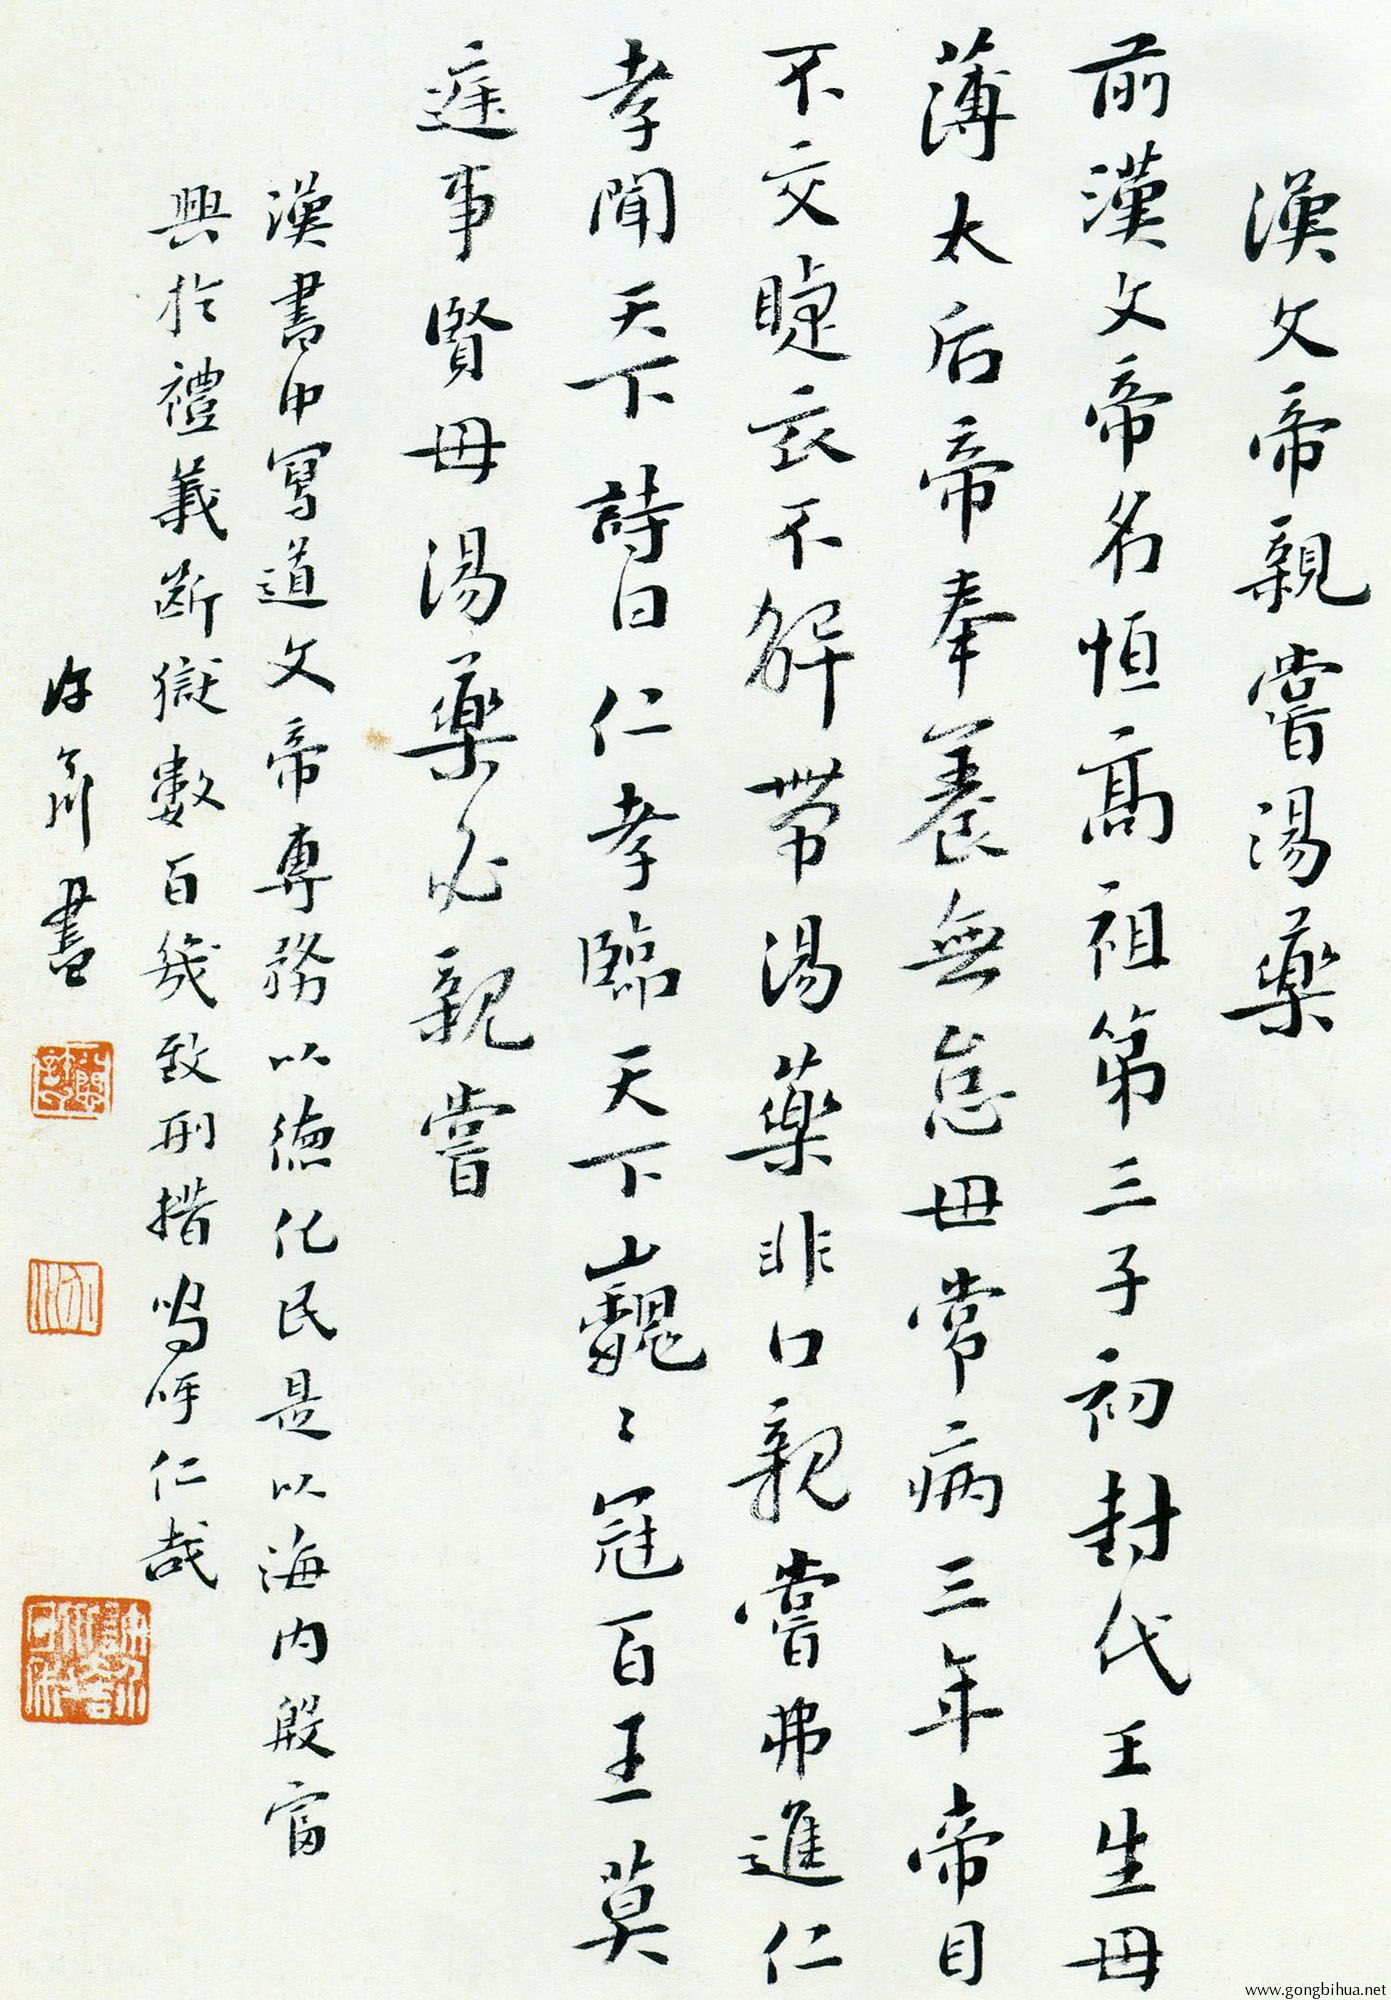 漢文帝親嘗湯藥
前漢文帝名恒高祖第三子初封代王生母
薄太后帝奉養無怠母常病三年帝目
不交睫衣不解帶湯藥非口親嘗弗進仁
孝聞天下詩曰仁孝臨天下巍〻冠百王莫
庭事賢母湯藥必親嘗
漢書中寫道文帝專務以德化民是以海內殷富
興於禮義斷獄數百幾致刑措嗚呼仁哉
書
www.gongbihua.net